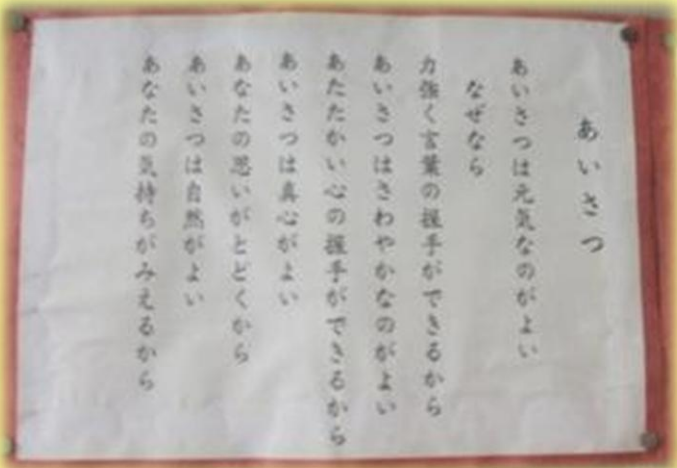 あいさつ
あいさつは元気なのがよい
なぜなら
力強く言葉の握手ができるから
あいさつはさわやかなのがよい
あたたかい心の握手ができるから
あいさつは真心がよい
あなたの思いがとどくから
あいさつは自然がよい
あなたの気持ちがみえるから